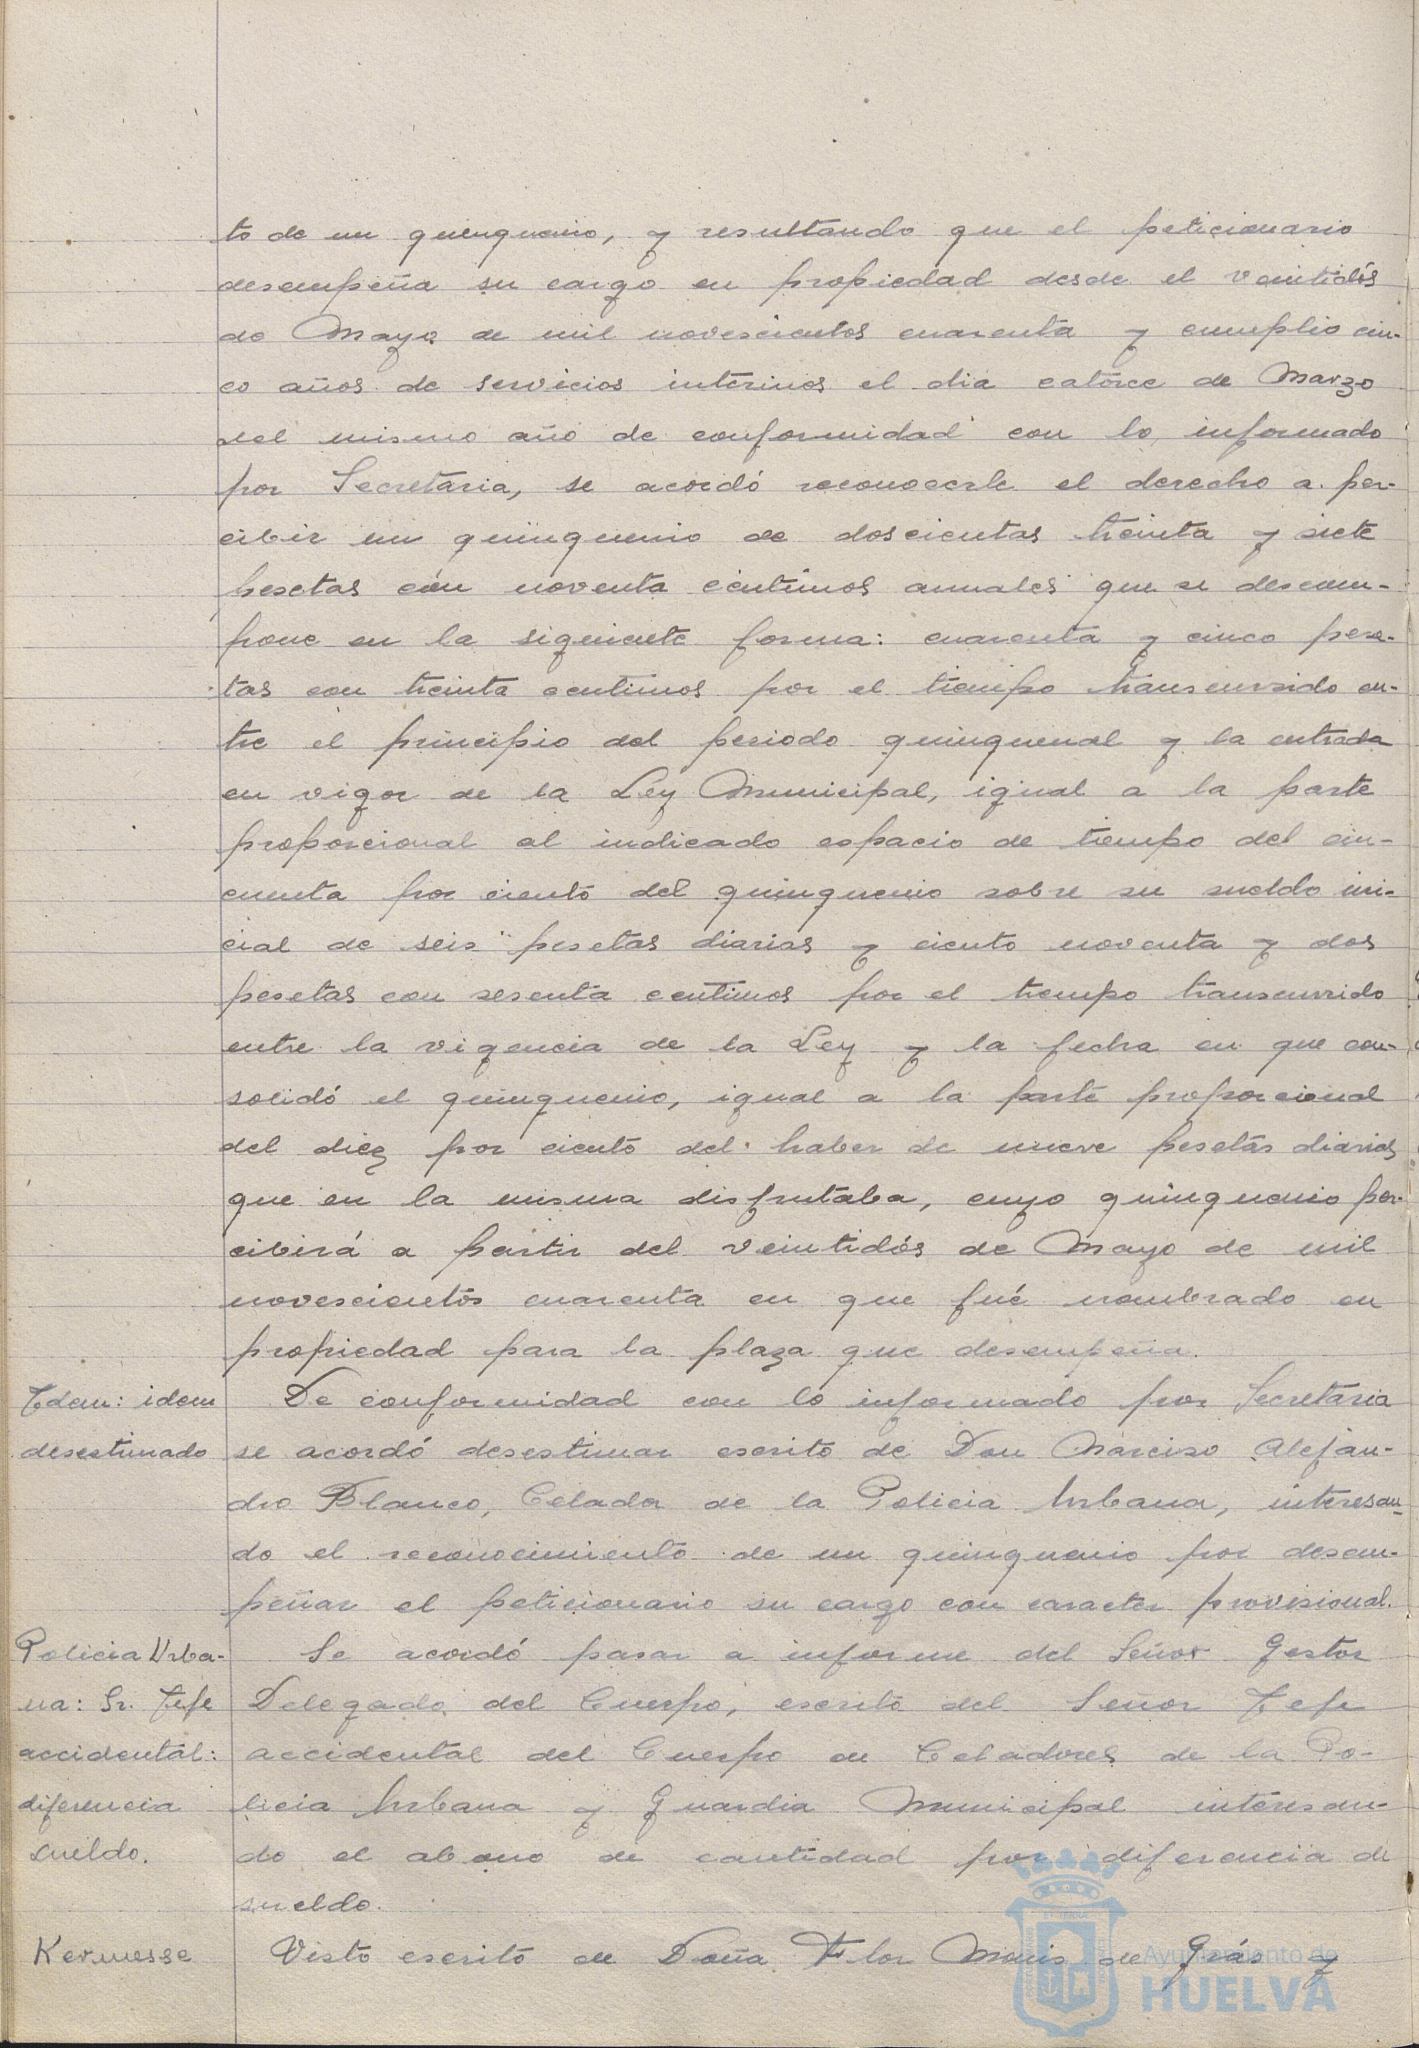 to de un quinquenio, y resultando que el peticionario
desempeña su cargo en propiedad desde el veintidós
de Mayo de mil novescientos cuarenta y cumplio cin-
co años de servicios interinos el dia catorce de Marzo
del mismo año de conformidad con lo informado
por Secretaria, se acordó reconocerle el derecho a per-
cibir un quinquenio de doscientas treinta y siete
pesetas con noventa centimos anuales que se descom-
pone en la siguiente forma: cuarenta y cinco pese-
tas con treinta centimos por el tiempo transcurrido en-
tre el principio del periodo quinquenal y la entrada
en vigor de la Ley Municipal, igual a la parte
proporcional al indicado espacio de tiempo del cin-
cuenta por ciento del quinquenio sobre su sueldo ini-
cial de seis pesetas diarias y ciento noventa y dos
pesetas con sesenta centimos por el tiempo transcurrido
entre la vigencia de la Ley y la fecha en que con-
solidó el quinquenio, igual a la parte proporcional
del diez por ciento del haber de nueve pesetas diarias
que en la misma disfrutaba, cuyo quinquenio per-
cibirá a partir del veintidós de Mayo de mil
novescientos cuarenta en que fué nombrado en
propiedad para la plaza que desempeña.
Idem: idem
desestimado
De conformidad con lo informado por Secretaria
se acordó desestimar escrito de Don Narciso Alejan-
dro Blanco, Celador de la Policia Urbana, interesan-
do el reconocimiento de un quinquenio por desem-
peñar el peticionario su cargo con caracter provisional.
Policia Urba-
na: Sr. Jefe
accidental:
diferencia
sueldo.
Se acordó pasar a informe del Señor Gestor
Delegado del Cuerpo, escrito del Señor Jefe
accidental del Cuerpo de Celadores de la Po-
licia Urbana y Guardia Municipal interesan-
do el abono de cantidad por diferencia de
sueldo.
Kermesse
Visto escrito de Doña Flor de Grás y
Ayuntamiento de
HUELVA